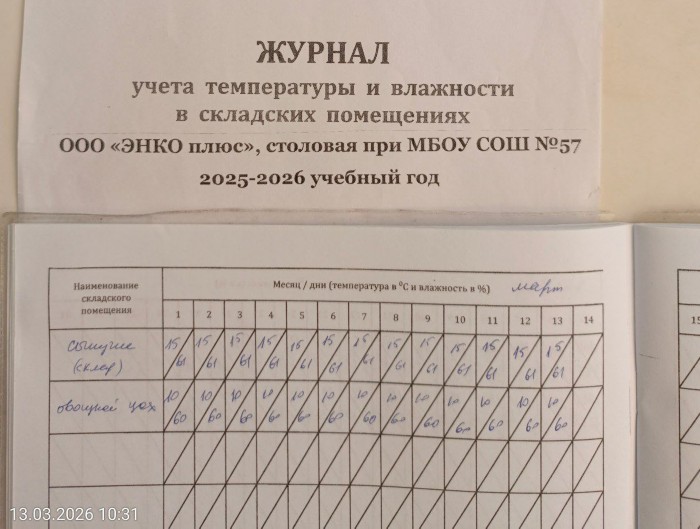 ЖУРНАЛ
учета температуры и влажности
в складских помещениях
ООО «ЭНКО плюс», столовая при МБОУ СОШ №57
2025-2026 учебный год
Наименование складского помещения
Месяц / дни (температура в °С и влажность в %) март
1 2 3 4 5 6 7 8 9 10 11 12 13 14
15
сыпучие (склад) 15/61 15/61 15/61 15/61 15/61 15/61 15/61 15/61 15/61 15/61 15/61 15/61 15/61
овощной цех 10/60 10/60 10/60 10/60 10/60 10/60 10/60 10/60 10/60 10/60 10/60 10/60 10/60
13.03.2026 10:31